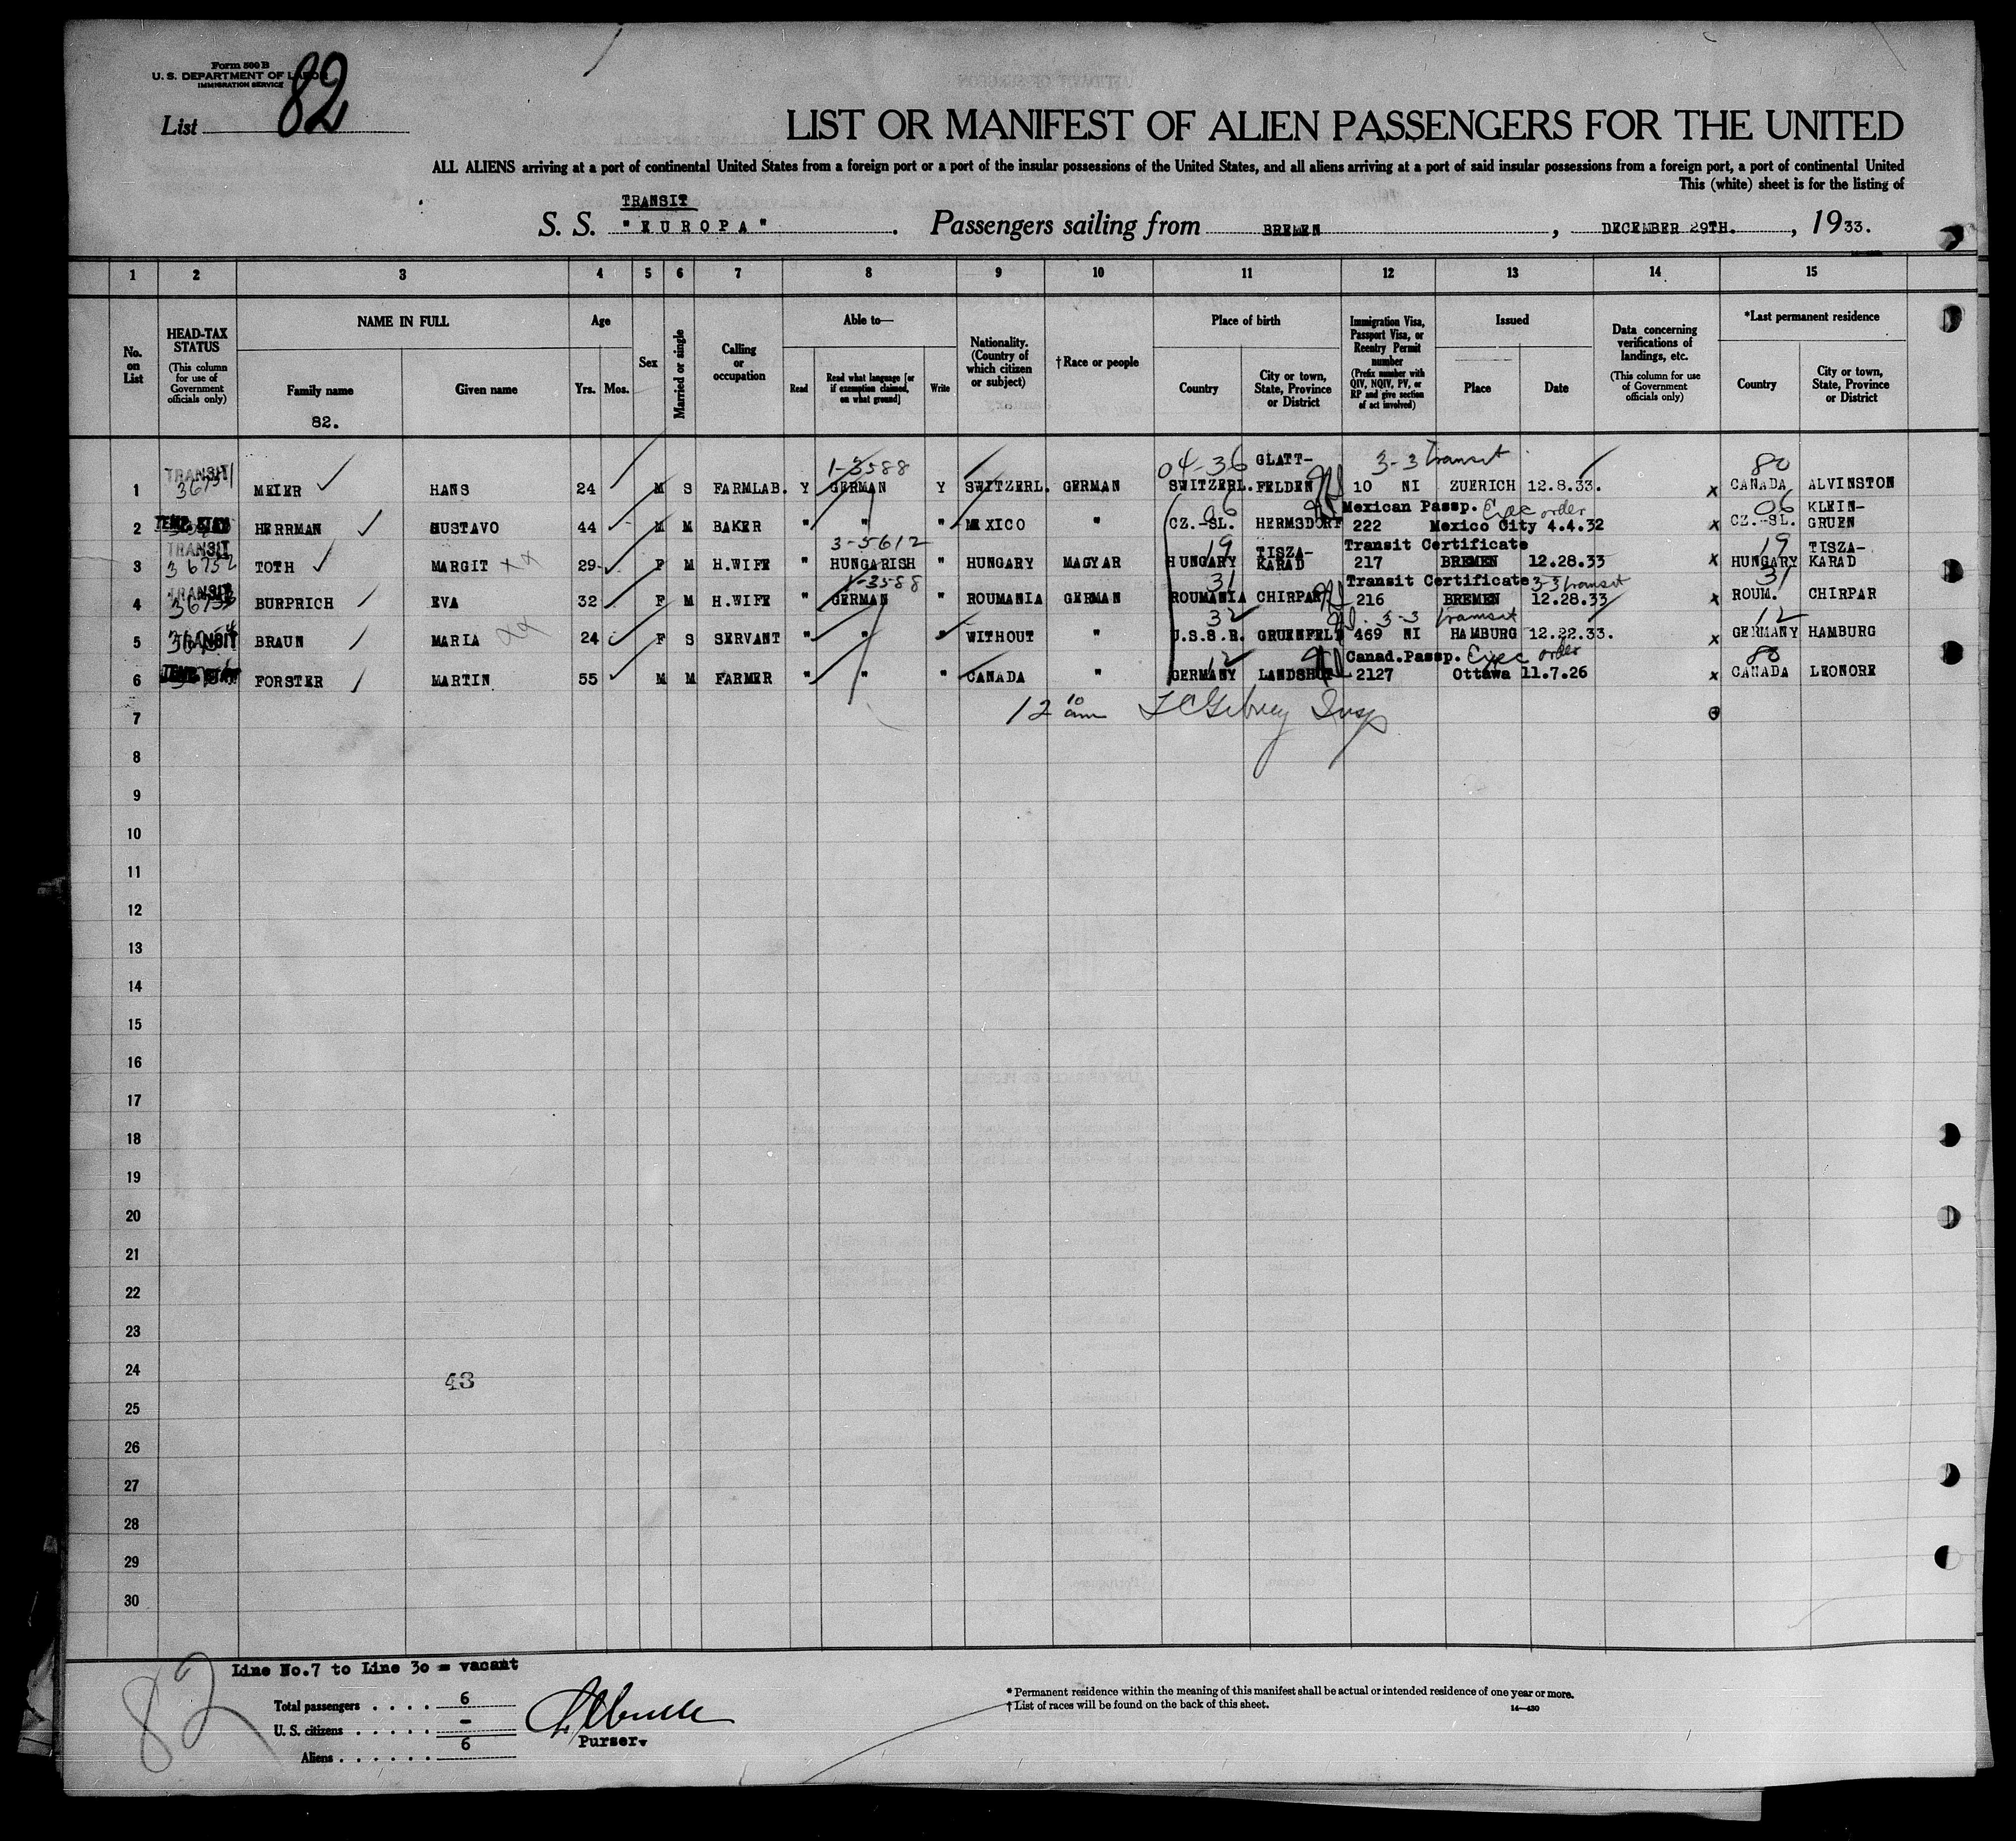 Form 500 B
U. S. DEPARTMENT OF LABOR
IMMIGRATION SERVICE
List 82
LIST OR MANIFEST OF ALIEN PASSENGERS FOR THE UNITED
ALL ALIENS arriving at a port of continental United States from a foreign port or a port of the insular possessions of the United States, and all aliens arriving at a port of said insular possessions from a foreign port, a port of continental United
This (white) sheet is for the listing of
TRANSIT
S. S. "EUROPA". Passengers sailing from BREMEN, DECEMBER 29TH., 1933.
1 2 3 4 5 6 7 8 9 10 11 12 13 14 15
No. on List
HEAD-TAX STATUS
(This column for use of Government officials only)
NAME IN FULL
Family name
82.
Given name
Age
Yrs. Mos.
Sex
Married or single
Calling or occupation
Able to—
Read
Read what language [or if exemption claimed, on what ground]
Write
Nationality. (Country of which citizen or subject)
†Race or people
Place of birth
Country
City or town, State, Province or District
Immigration Visa, Passport Visa, or Reentry Permit number
(Prefix number with QIV, NQIV, PV, or RP and give section of act involved)
Issued
Place
Date
Data concerning verifications of landings, etc.
(This column for use of Government officials only)
*Last permanent residence
Country
City or town, State, Province or District
TRANSIT 1-3588 04-36 GLATT- 3-3 transit 80
1 36731 MEIER HANS 24 M S FARMLAB. Y GERMAN Y SWITZERL. GERMAN SWITZERL. FELDEN 10 NI ZUERICH 12.8.33. x CANADA ALVINSTON
06 Mexican Passp. Exec order 06 KLEIN-
2 TEMP. STAY HERRMAN GUSTAVO 44 M M BAKER " " " MEXICO " CZ.-SL. HERMSDORF 222 Mexico City 4.4.32 x CZ.-SL. GRUEN
TRANSIT 3-5612 19 TISZA- Transit Certificate 19 TISZA-
3 36732 TOTH MARGIT xx 29 F M H.WIFE " HUNGARISH " HUNGARY MAGYAR HUNGARY KARAD 217 BREMEN 12.28.33 x HUNGARY KARAD
TRANSIT 1-3588 31 Transit Certificate 3-3 transit 31
4 36733 BURPRICH EVA 32 F M H.WIFE " GERMAN " ROUMANIA GERMAN ROUMANIA CHIRPAR 216 BREMEN 12.28.33 x ROUM. CHIRPAR
32 3-3 transit 12
5 TRANSIT BRAUN MARIA xx 24 F S SERVANT " " " WITHOUT " U.S.S.R. GRUENFELD 469 NI HAMBURG 12.22.33. x GERMANY HAMBURG
12 Canad.Passp. Exec order 80
6 TEMP. STAY FORSTER MARTIN 55 M M FARMER " " " CANADA " GERMANY LANDSHUT 2127 Ottawa 11.7.26 x CANADA LEONORE
7 12 10 am Insp
8
9
10
11
12
13
14
15
16
17
18
19
20
21
22
23
24 43
25
26
27
28
29
30
82
Line No.7 to Line 30 = vacant
Total passengers . . . . 6
U. S. citizens . . . . . -
Aliens . . . . . . 6
Purser.
* Permanent residence within the meaning of this manifest shall be actual or intended residence of one year or more.
† List of races will be found on the back of this sheet.
14—430